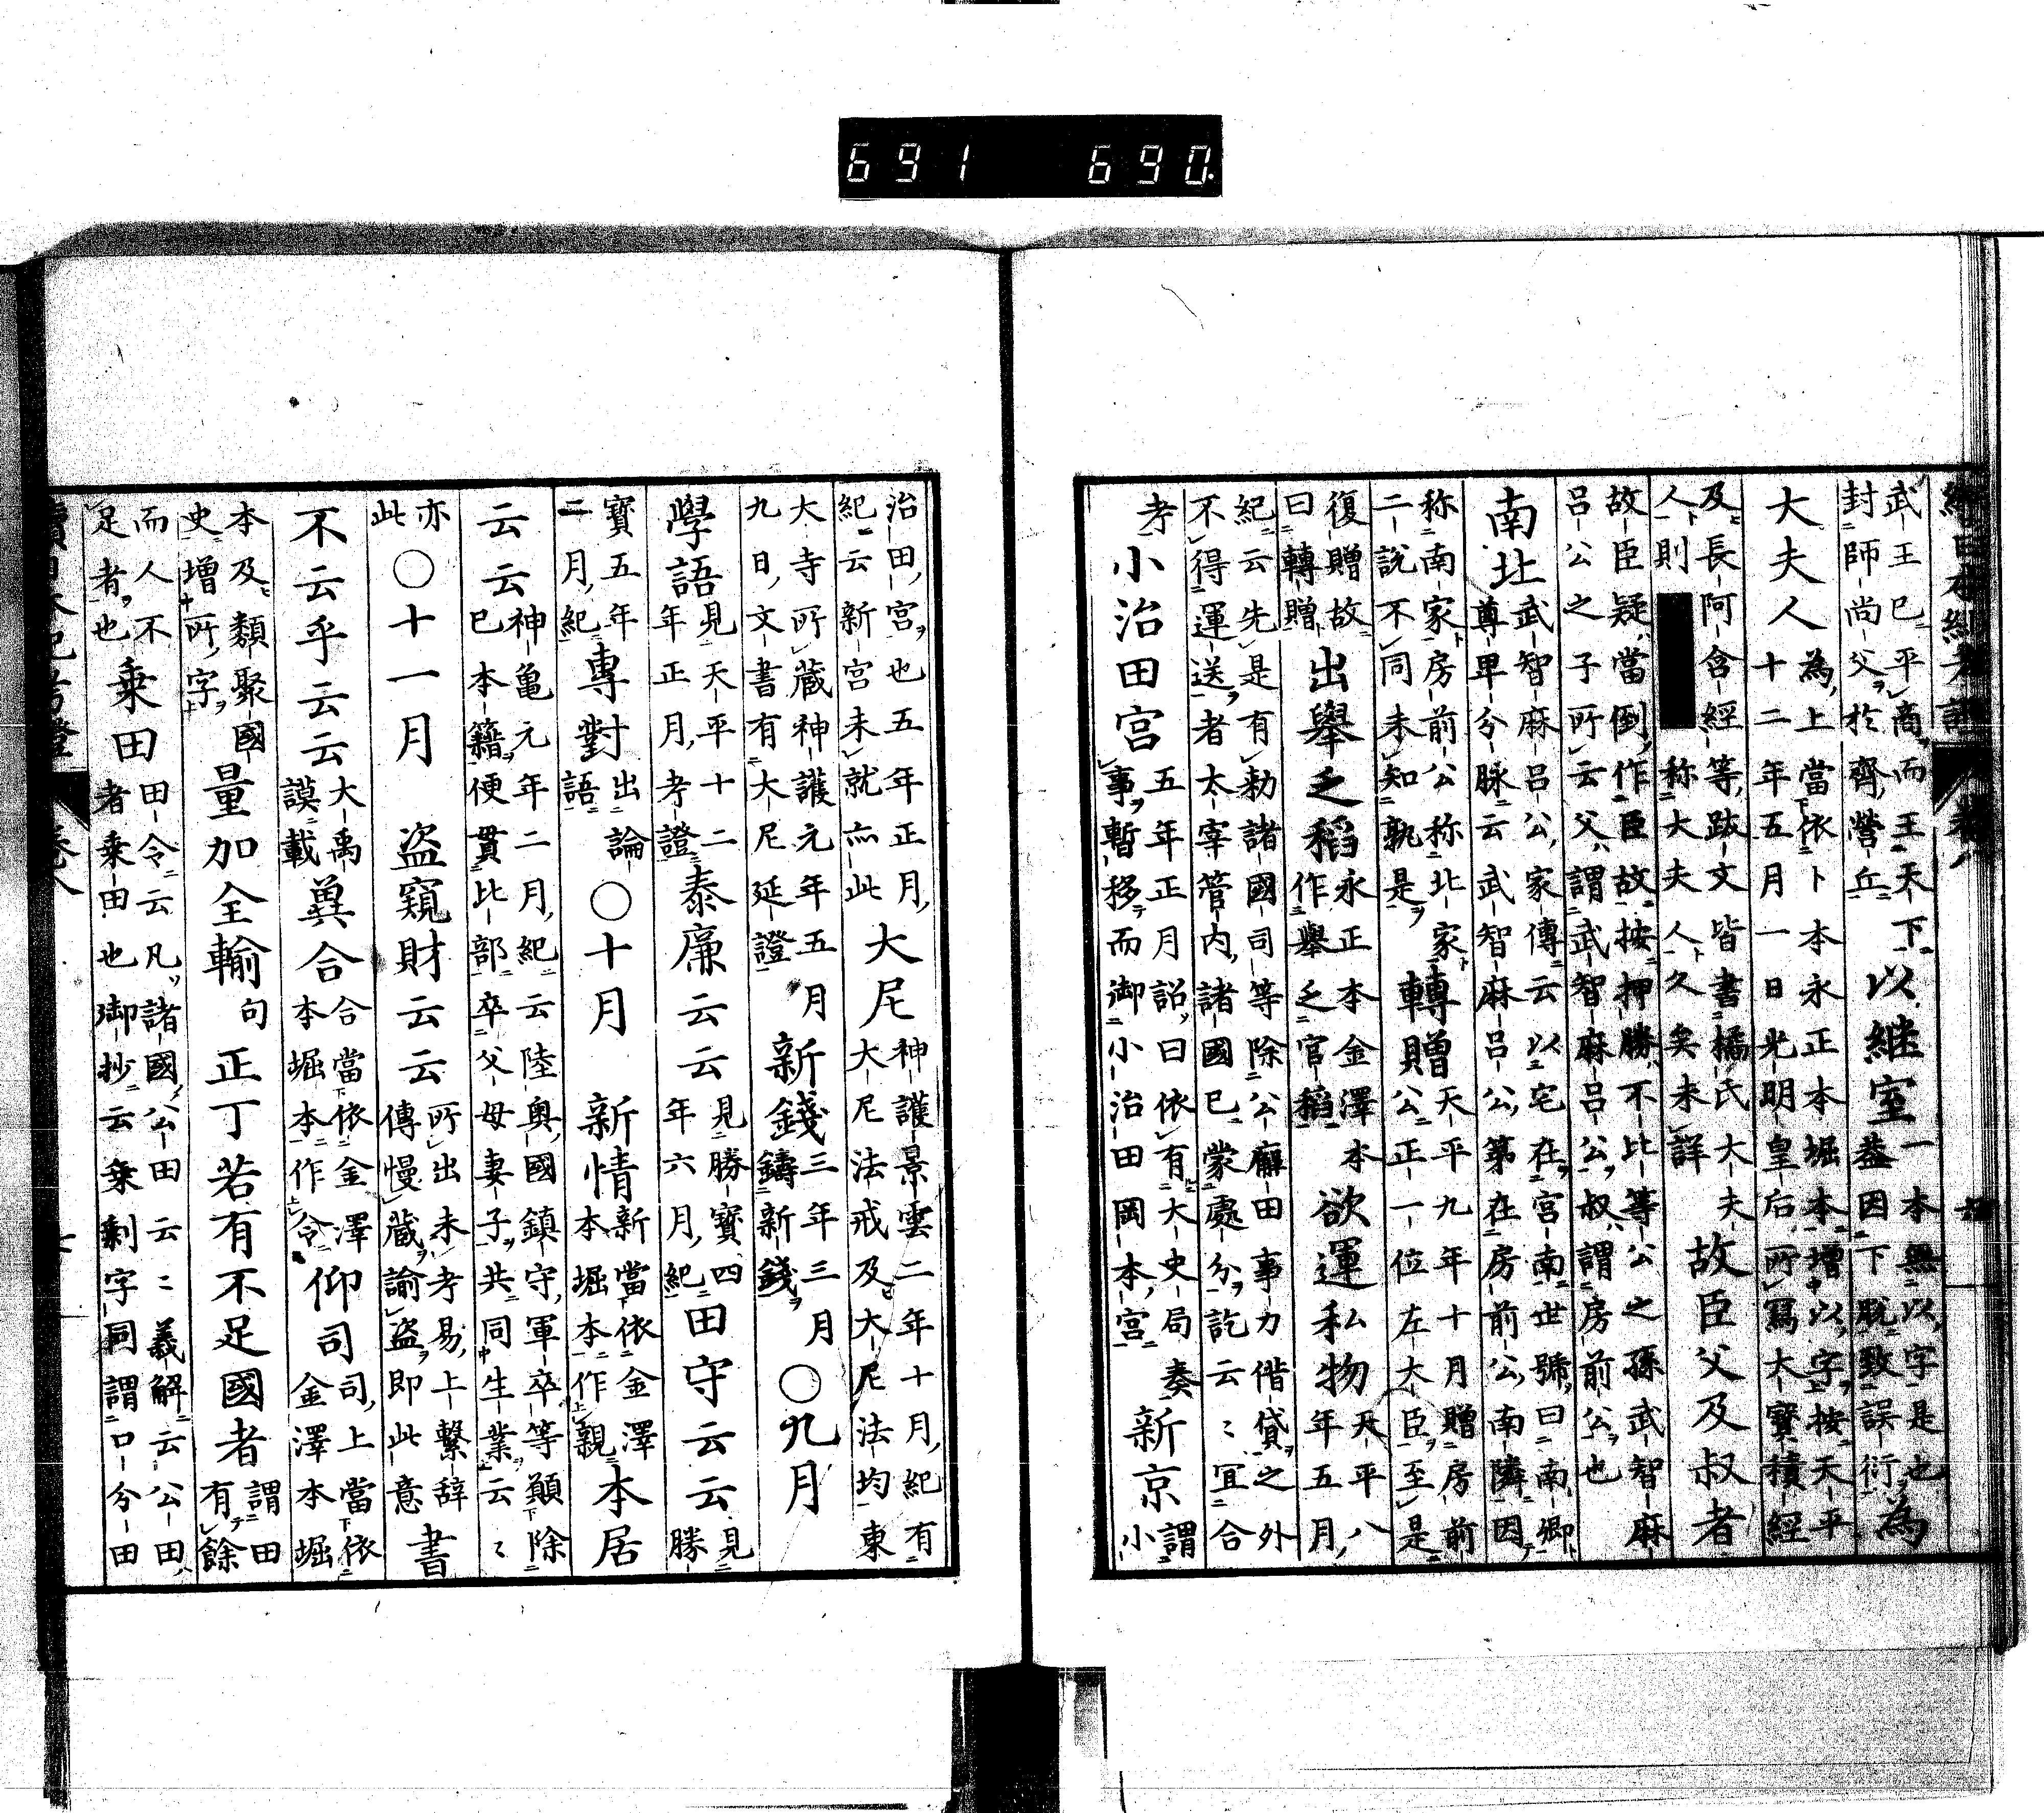 691 690
武王已平商而王天下
封師尚父於齊營丘
以継室
一本無以字是也
蓋因下脱致誤衍
為
大夫人
為上當依卜本永正本堀本増以字按天平
十二年五月一日光明皇后所寫大寶積經
及長阿含經等跋文皆書橘氏大夫
人則
称大夫人久矣未詳
故臣父及叔者
故臣疑當倒作臣故按押勝不比等公之孫武智麻
呂公之子所云父謂武智麻呂公叔謂房前公也
南北
武智麻呂公家傳云以宅在宮南世號曰南卿
尊卑分脉云武智麻呂公第在房前公南隣因
称南家房前公称北家
二説不同未知孰是
轉贈
天平九年十月贈房前
公正一位左大臣至是
復贈故
曰轉贈
出舉之稻
永正本金澤本
作舉之官稻
欲運私物
天平八
年五月
紀云先是有勅諸國司等除公廨田事力借貸之外
不得運送者太宰管内諸國已蒙處分訖云〻宜合
考
小治田宮
五年正月詔曰依有大史局奏
事暫移而御小治田岡本宮
新京
謂
小
治田宮也五年正月
紀云新宮未就亦此
大尼
神護景雲二年十月紀有
大尼法戒及大尼法均東
大寺所蔵神護元年五月
九日文書有大尼延證
新錢
三年三月
鑄新錢
〇九月
學語
見天平十二
年正月考證
泰廉云云
見勝寶四
年六月紀
田守云云
見
勝
寶五年
二月紀
專對
出論
語
〇十月
新情
新當依金澤
本堀本作親
本居
云云
神亀元年二月紀云陸奥國鎮守軍卒等願除
已本籍便貫比部卒父母妻子共同生業云〻
亦
此
〇十一月
盜窺財云云
所出未考易上繫辞
傳慢蔵諭盗即此意
書
不云乎云云
大禹
謨載
冀合
合當依金澤
本堀本作令
仰司
司上當依
金澤本堀
本及類聚國
史増所字
量加全輸
句
正丁若有不足國者
謂田
有餘
而人不
足者也
乗田
田令云凡諸國公田云〻義解云公田
者乗田也御抄云乗剰字同謂口分田
續日本紀考證
巻八